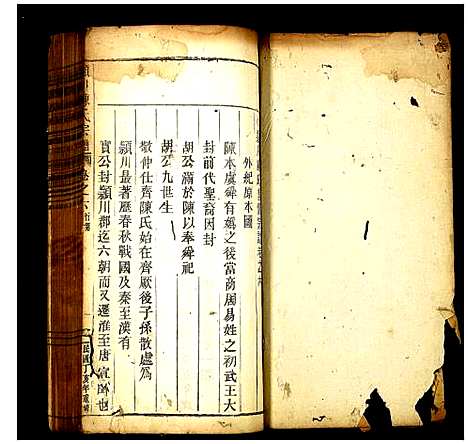 外紀原本圖
陳本虞舜有嬀之後當商周易姓之初武王大
封前代聖裔因封
胡公滿於陳以奉舜祀
胡公九世生
敬仲仕齊陳氏始在齊厥後子孫散處爲
潁川最著歷春秋戰國及秦至漢有
實公封潁川郡迄六朝而又遷淮至唐宣師也
陳氏宗譜
卷之六
民國丁亥年